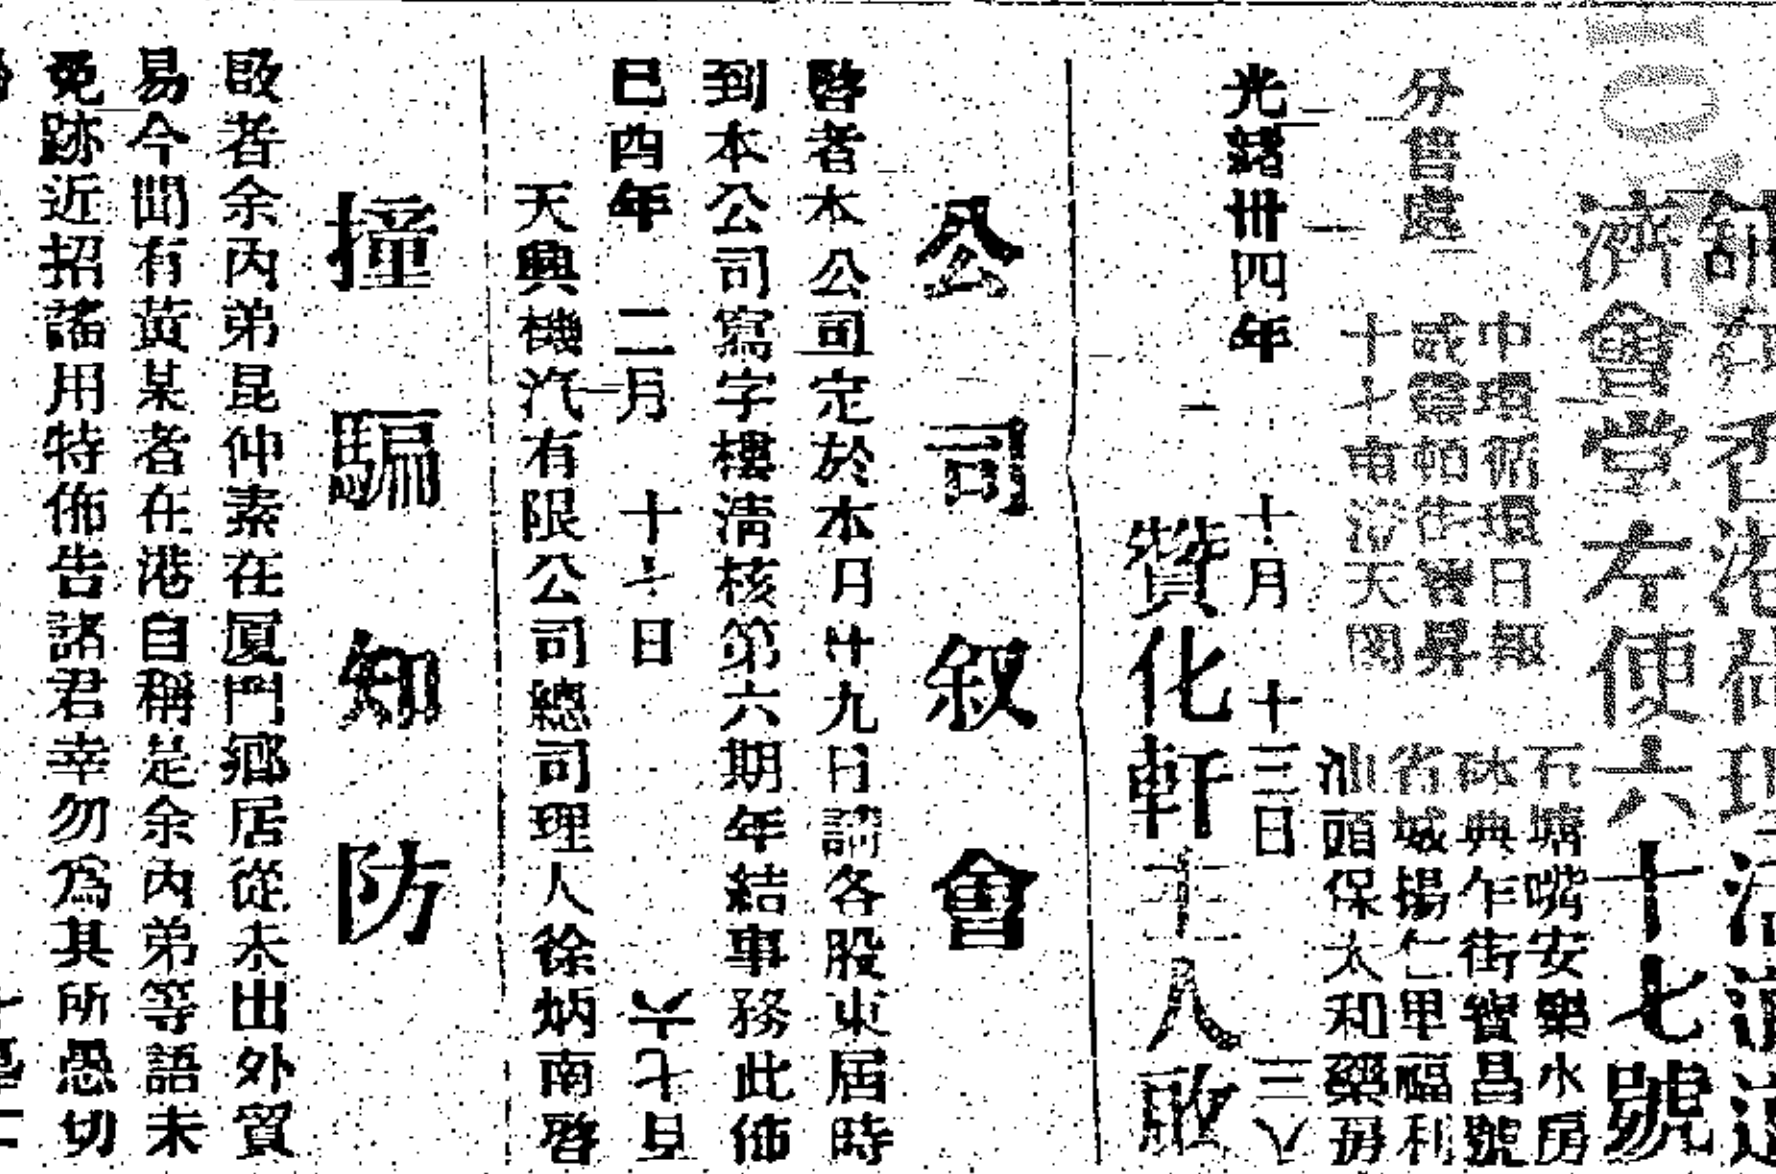 濟會堂左便六十七號
分售處
中環循環日報
石塘嘴安樂水房
乍街寶昌號
省城楊仁里福利
十七甫澄天閣
汕頭保太和藥房
光緒卅四年 十一月 十三日 三八
贊化軒主人啟
公司叙會
啓者本公司定於本月廿九日請各股東屆時
到本公司寫字樓清核第六期年結事務此佈
己酉年 二月 十七日 六七見
天興機汽有限公司總司理人徐炳南啓
撞騙知防
啟者余內弟昆仲素在厦門鄉居從未出外貿
易今聞有黃某者在港自稱是余內弟等語未
免跡近招謠用特佈告諸君幸勿為其所愚切